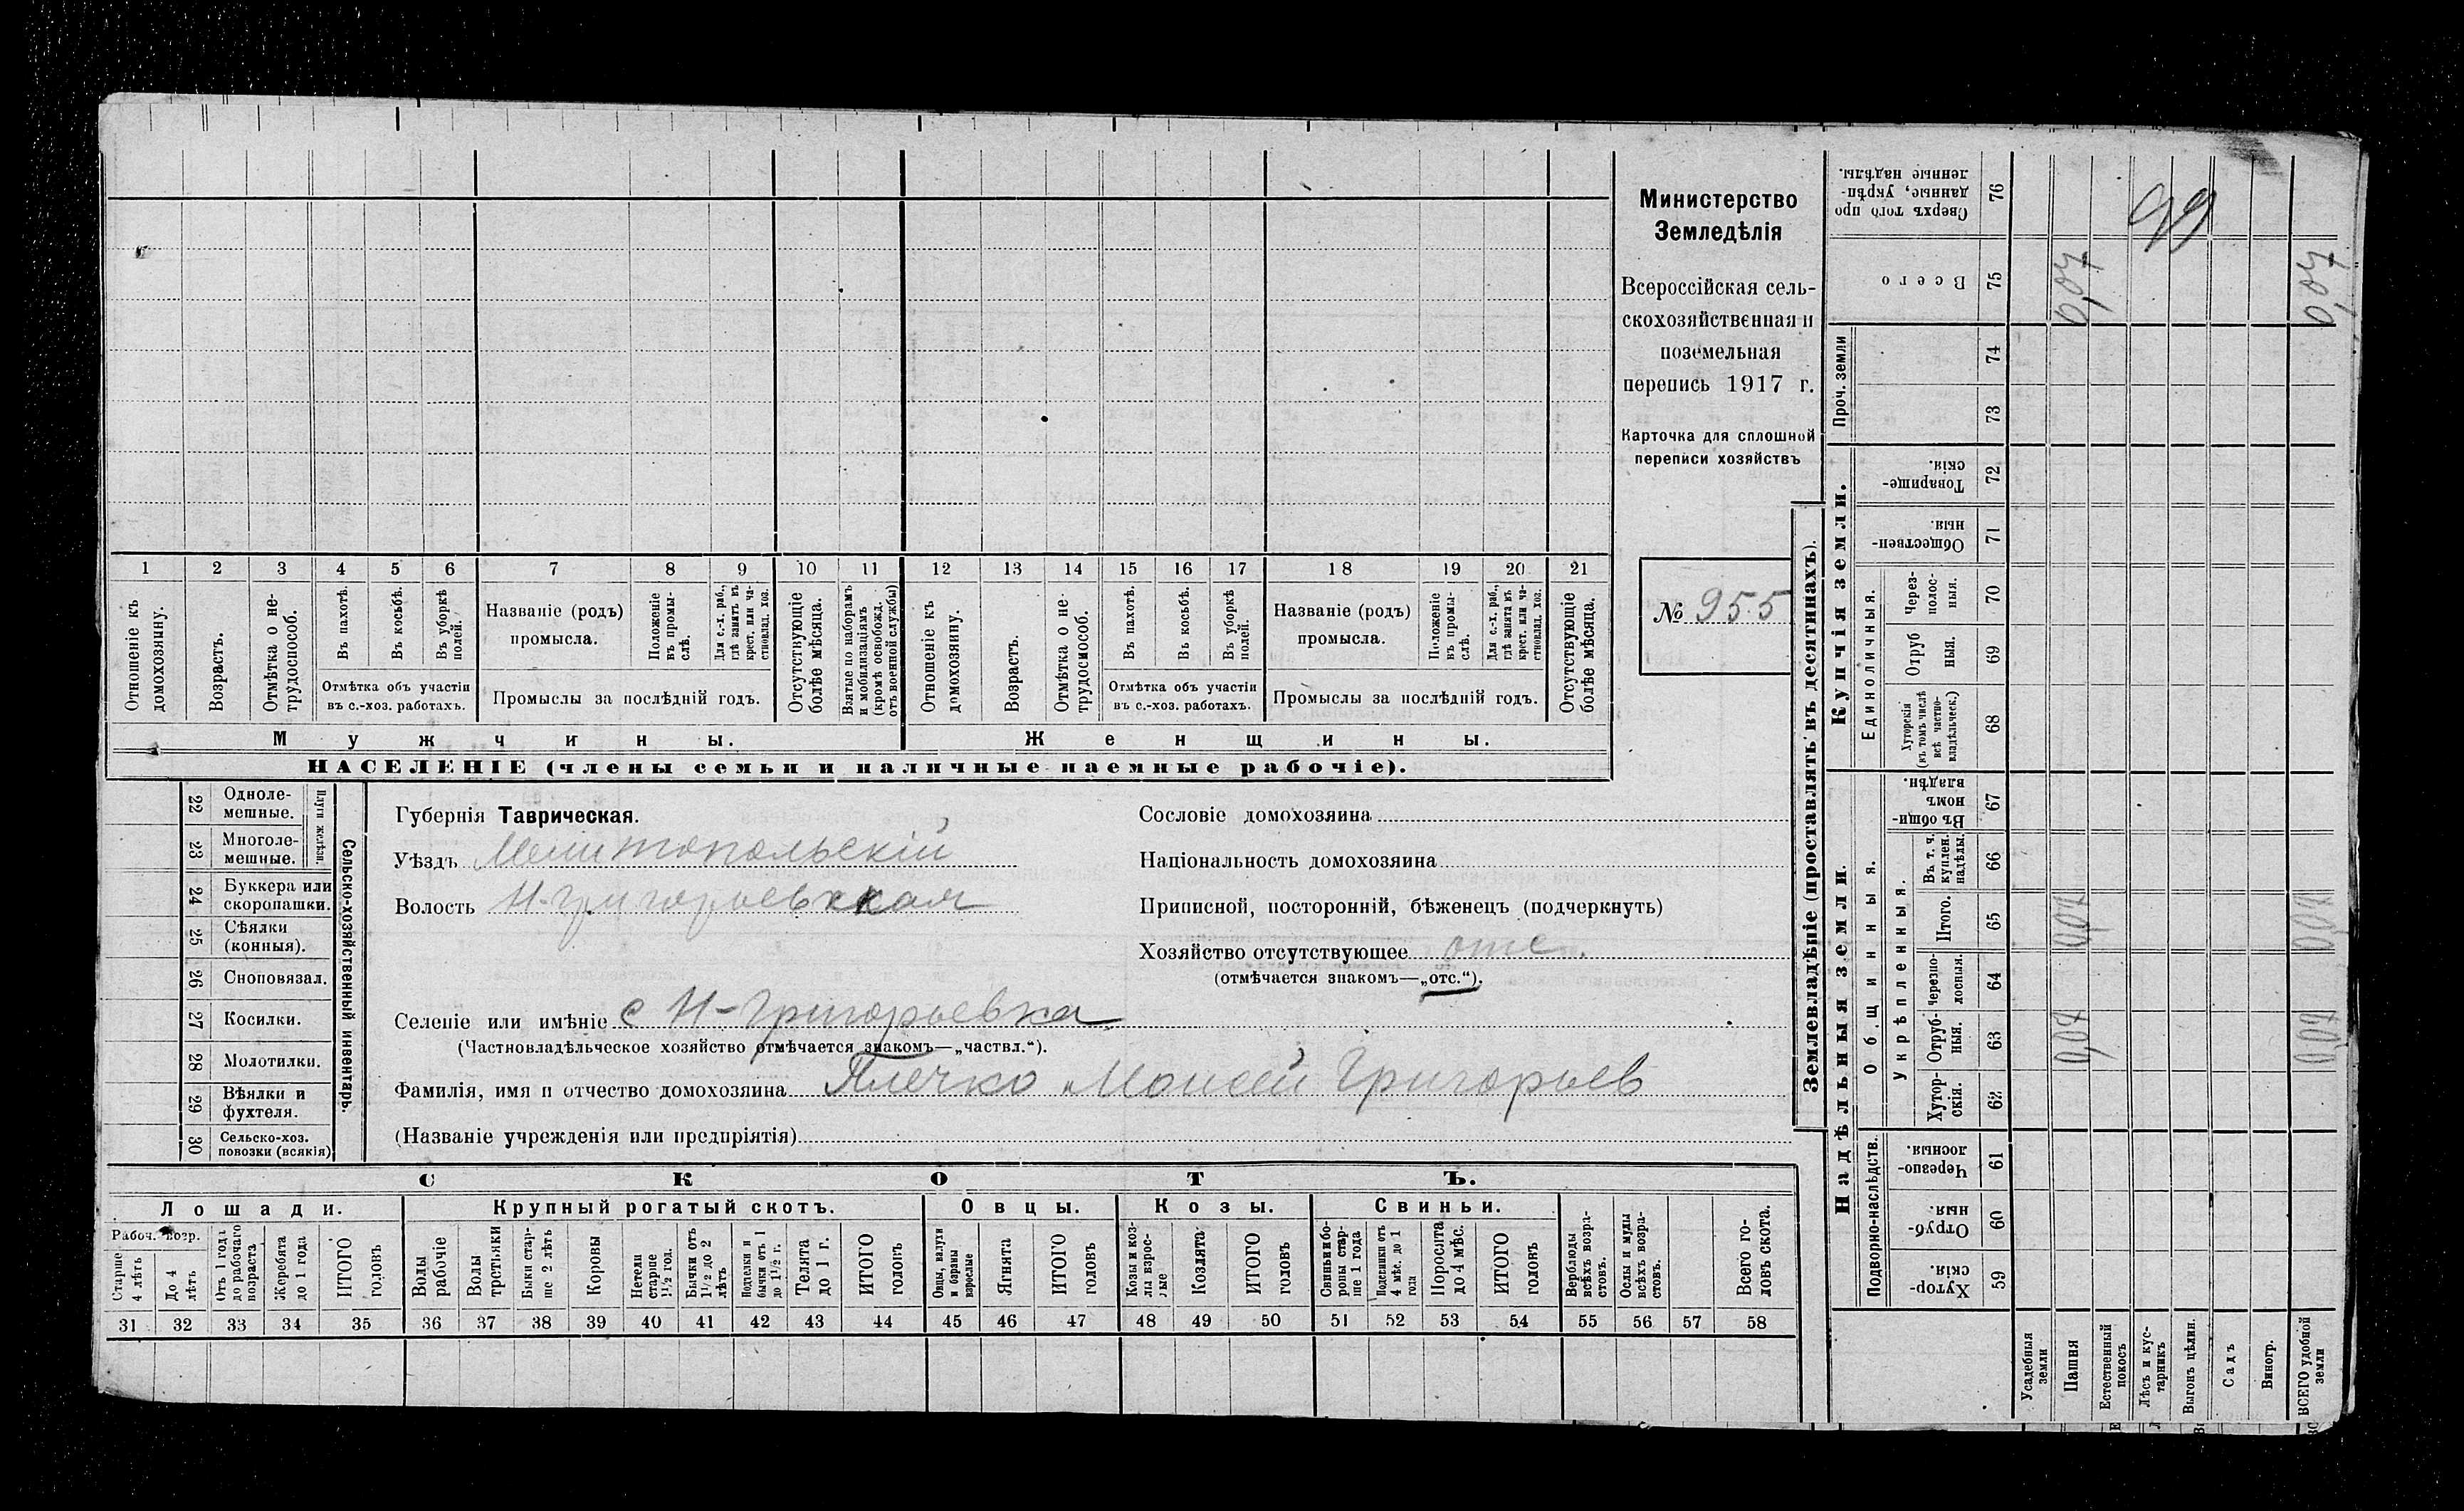 Министерство
Земледѣлія
Всероссійская сель-
скохозяйственная и
поземельная
перепись 1917 г.
Карточка для сплошной
переписи хозяйствъ
№ 955
1 2 3 4 5 6 7 8 9 10 11 12 13 14 15 16 17 18 19 20 21
Отношеніе къ домохозяину.
Возрастъ.
Отмѣтка о не-трудоспособ.
Въ пахотѣ.
Въ косьбѣ.
Въ уборкѣ полей.
Отмѣтка объ участіи
въ с.-хоз. работахъ.
Названіе (родъ)
промысла.
Положеніе въ промы-слѣ.
Для с.-х. раб., гдѣ занятъ въ крест. или ча-стновлад. хоз.
Промыслы за послѣдній годъ.
Отсутствующіе болѣе мѣсяца.
Взятые по наборамъ и мобилизаціямъ (кромѣ освобожд. отъ военной службы)
Отношеніе къ домохозяину.
Возрастъ.
Отмѣтка о не-трудоспособ.
Въ пахотѣ.
Въ косьбѣ.
Въ уборкѣ полей.
Отмѣтка объ участіи
въ с.-хоз. работахъ.
Названіе (родъ)
промысла.
Положеніе въ промы-слѣ.
Для с.-х. раб., гдѣ занята въ крест. или ча-стновлад. хоз.
Промыслы за послѣдній годъ.
Отсутствующіе болѣе мѣсяца.
Мужчины.
Женщины.
НАСЕЛЕНІЕ (члены семьи и наличные наемные рабочіе).
22 Одноле-мешные.
23 Многоле-мешные.
Плуги желѣзн.
24 Буккера или скоропашки.
25 Сѣялки (конныя).
26 Сноповязал.
27 Косилки.
28 Молотилки.
29 Вѣялки и фухтеля.
30 Сельско-хоз. повозки (всякія)
Сельско-хозяйственный инвентарь.
Губернія Таврическая.
Уѣздъ Мелитопольскій
Волость Н-Григорьевская
Селеніе или имѣніе с Н-Григорьевка
(Частновладѣльческое хозяйство отмѣчается знакомъ—„частвл.“).
Фамилія, имя и отчество домохозяина Плечко Моисей Григорьев
(Названіе учрежденія или предпріятія)
Сословіе домохозяина
Національность домохозяина
Приписной, посторонній, бѣженецъ (подчеркнуть)
Хозяйство отсутствующее отс.
(отмѣчается знакомъ—„отс.“).
СКОТЪ.
Лошади.
Крупный рогатый скотъ.
Овцы.
Козы.
Свиньи.
Рабоч. возр.
Старше 4 лѣтъ
До 4 лѣтъ
Отъ 1 года до рабочаго возраста
Жеребята до 1 года
ИТОГО головъ
Волы рабочіе
Волы третьяки
Быки стар-ше 2 лѣтъ
Коровы
Нетели старше 1½ год.
Бычки отъ 1½ до 2 лѣтъ
Подтелки и бычки отъ 1 до 1½ г.
Телята до 1 г.
ИТОГО головъ
Овцы, валухи и бараны взрослые
Ягнята
ИТОГО головъ
Козы и коз-лы взрос-лые
Козлята
ИТОГО головъ
Свиньи и бо-ровы стар-ше 1 года
Подсвинки отъ 4 мѣс. до 1 года
Поросята до 4 мѣс.
ИТОГО головъ
Верблюды всѣхъ возра-стовъ.
Ослы и мулы всѣхъ возра-стовъ.
Всего го-ловъ скота.
31 32 33 34 35 36 37 38 39 40 41 42 43 44 45 46 47 48 49 50 51 52 53 54 55 56 57 58
Землевладѣніе (проставлять въ десятинахъ).
Сверхъ того про данные, укрѣп-ленные надѣлы. 76
99
Всего 75 0,07 0,07
Проч. земли
74
73
Купчія земли.
Товарище-скія. 72
Обществен-ныя. 71
Единоличныя.
Через-полос-ныя. 70
Отруб ныя. 69
Хуторскія (въ томъ числѣ всѣ частно-владѣльческ.) 68
Надѣльныя земли.
Общинныя.
Въ общи-номъ владѣн. 67
Укрѣпленныя.
Въ т. ч. куплен. надѣлы 66
Итого. 65 0,07 0,07
Черезпо-лосныя. 64
Отруб-ныя. 63 0,07 0,07
Хутор-скія. 62
Подворно-наслѣдств.
Черезпо-лосныя 61
Отруб-ныя. 60
Хутор-скія. 59
Усадебныя земли
Пашня
Естественный покосъ
Лѣсъ и кус-тарникъ
Выгонъ цѣлин.
Садъ
Виногр.
ВСЕГО удобной земли